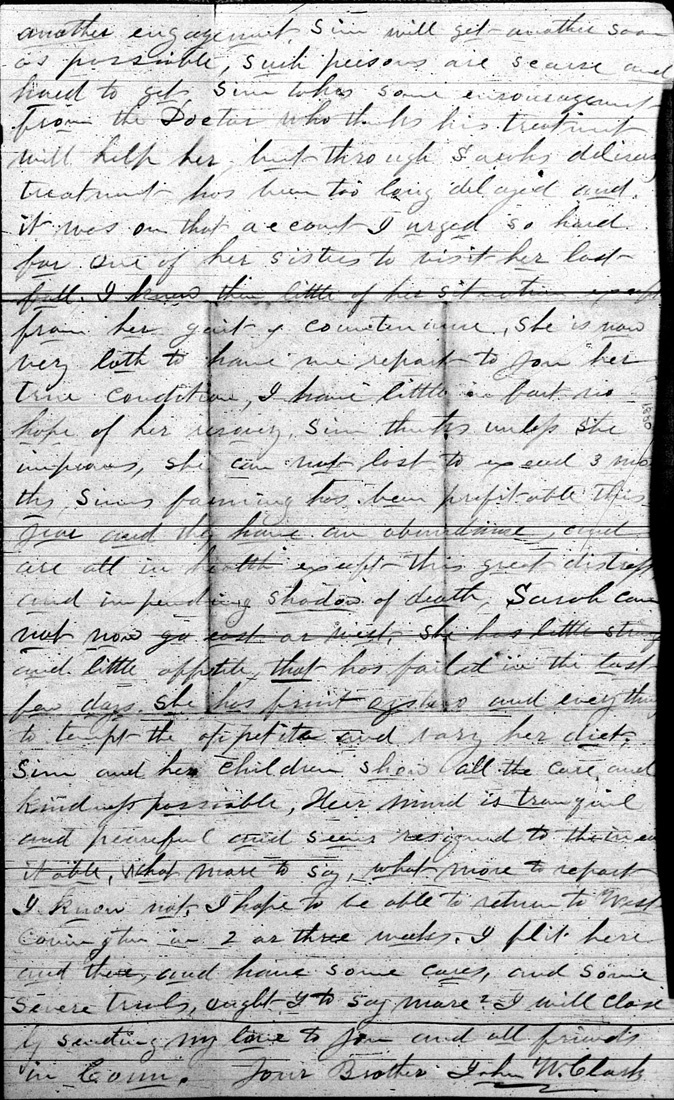 another engagement, Sim will get another soon
as possible, such persons are scarce and
hard to get, Sim takes some encouragement
from the Doctor who thinks his treatment
will help her, but through Sarahs delicacy
treatment has been too long delayed and
it was on that account I urged so hard
for one of her sisters to visit her last
fall. I knew then little of her situation except
from her gait & countenance, she is now
very loth to have me report to you her
true condition, I have little in fact no
hope of her recovery, Sim thinks unless she
improves, she can not last to exceed 3 mo
ths, Sims farming has been profitable this
year and they have an abundance, and
are all in health except this great distress
and impending shadow of death, Sarah can
not now go east or west, she has little
and little appetite, that has failed in the last
few days. She has fruit oysters and everything
to tempt the appetite and vary her diet,
Sim and her children show all the care and
kindness possiable, Her mind is tranquil
and peaceful and seems resigned to the inev
itable, What more to say, what more to report
I know not, I hope to be able to return to West
Covington in 2 or three weeks. I flit here
and there, and have some cares, and some
severe trials, ought I to say more? I will close
by sending my love to you and all friends
in Conn. Your Brother John W. Clark
1880